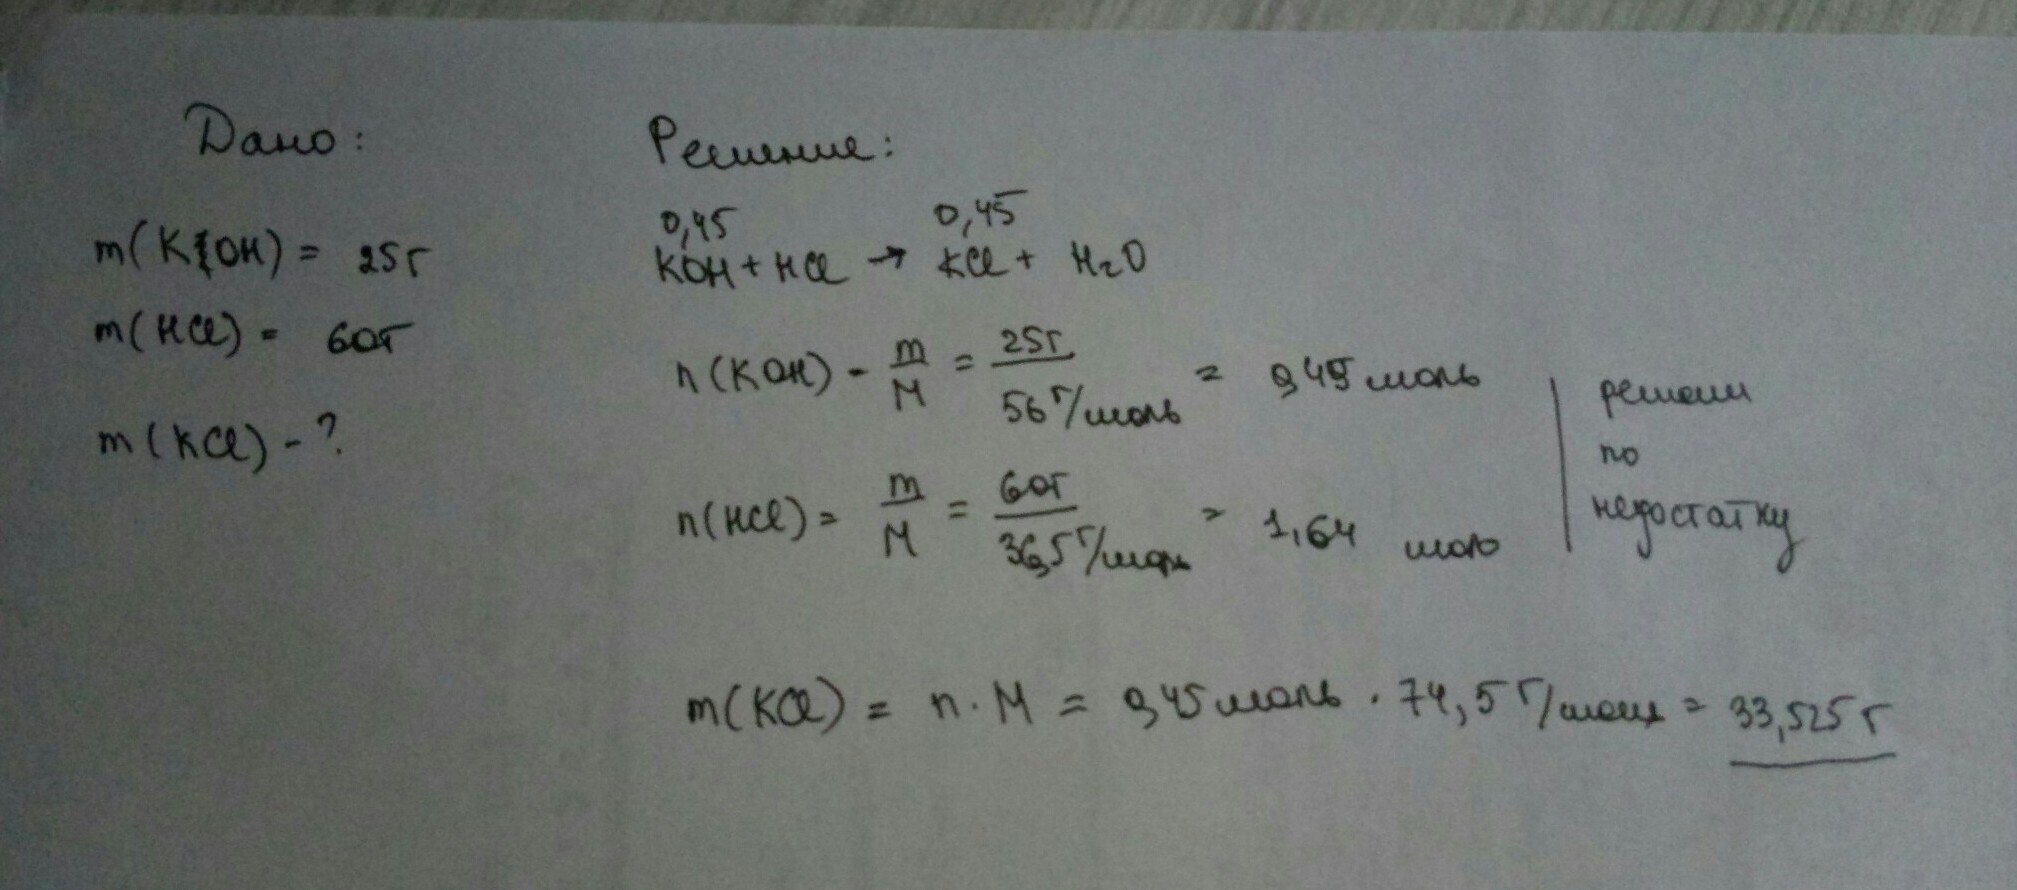 Дано:
m(KOH) = 25г
m(HCl) = 60г
m(KCl) - ?
Решение:
0,45 0,45
KOH + HCl → KCl + H2O
n(KOH) - m/M = 25г/56 г/моль = 0,45 моль
n(HCl) = m/M = 60г/36,5 г/моль = 1,64 моль
решаем
по
недостатку
m(KCl) = n · M = 0,45 моль · 74,5 г/моль = 33,525 г